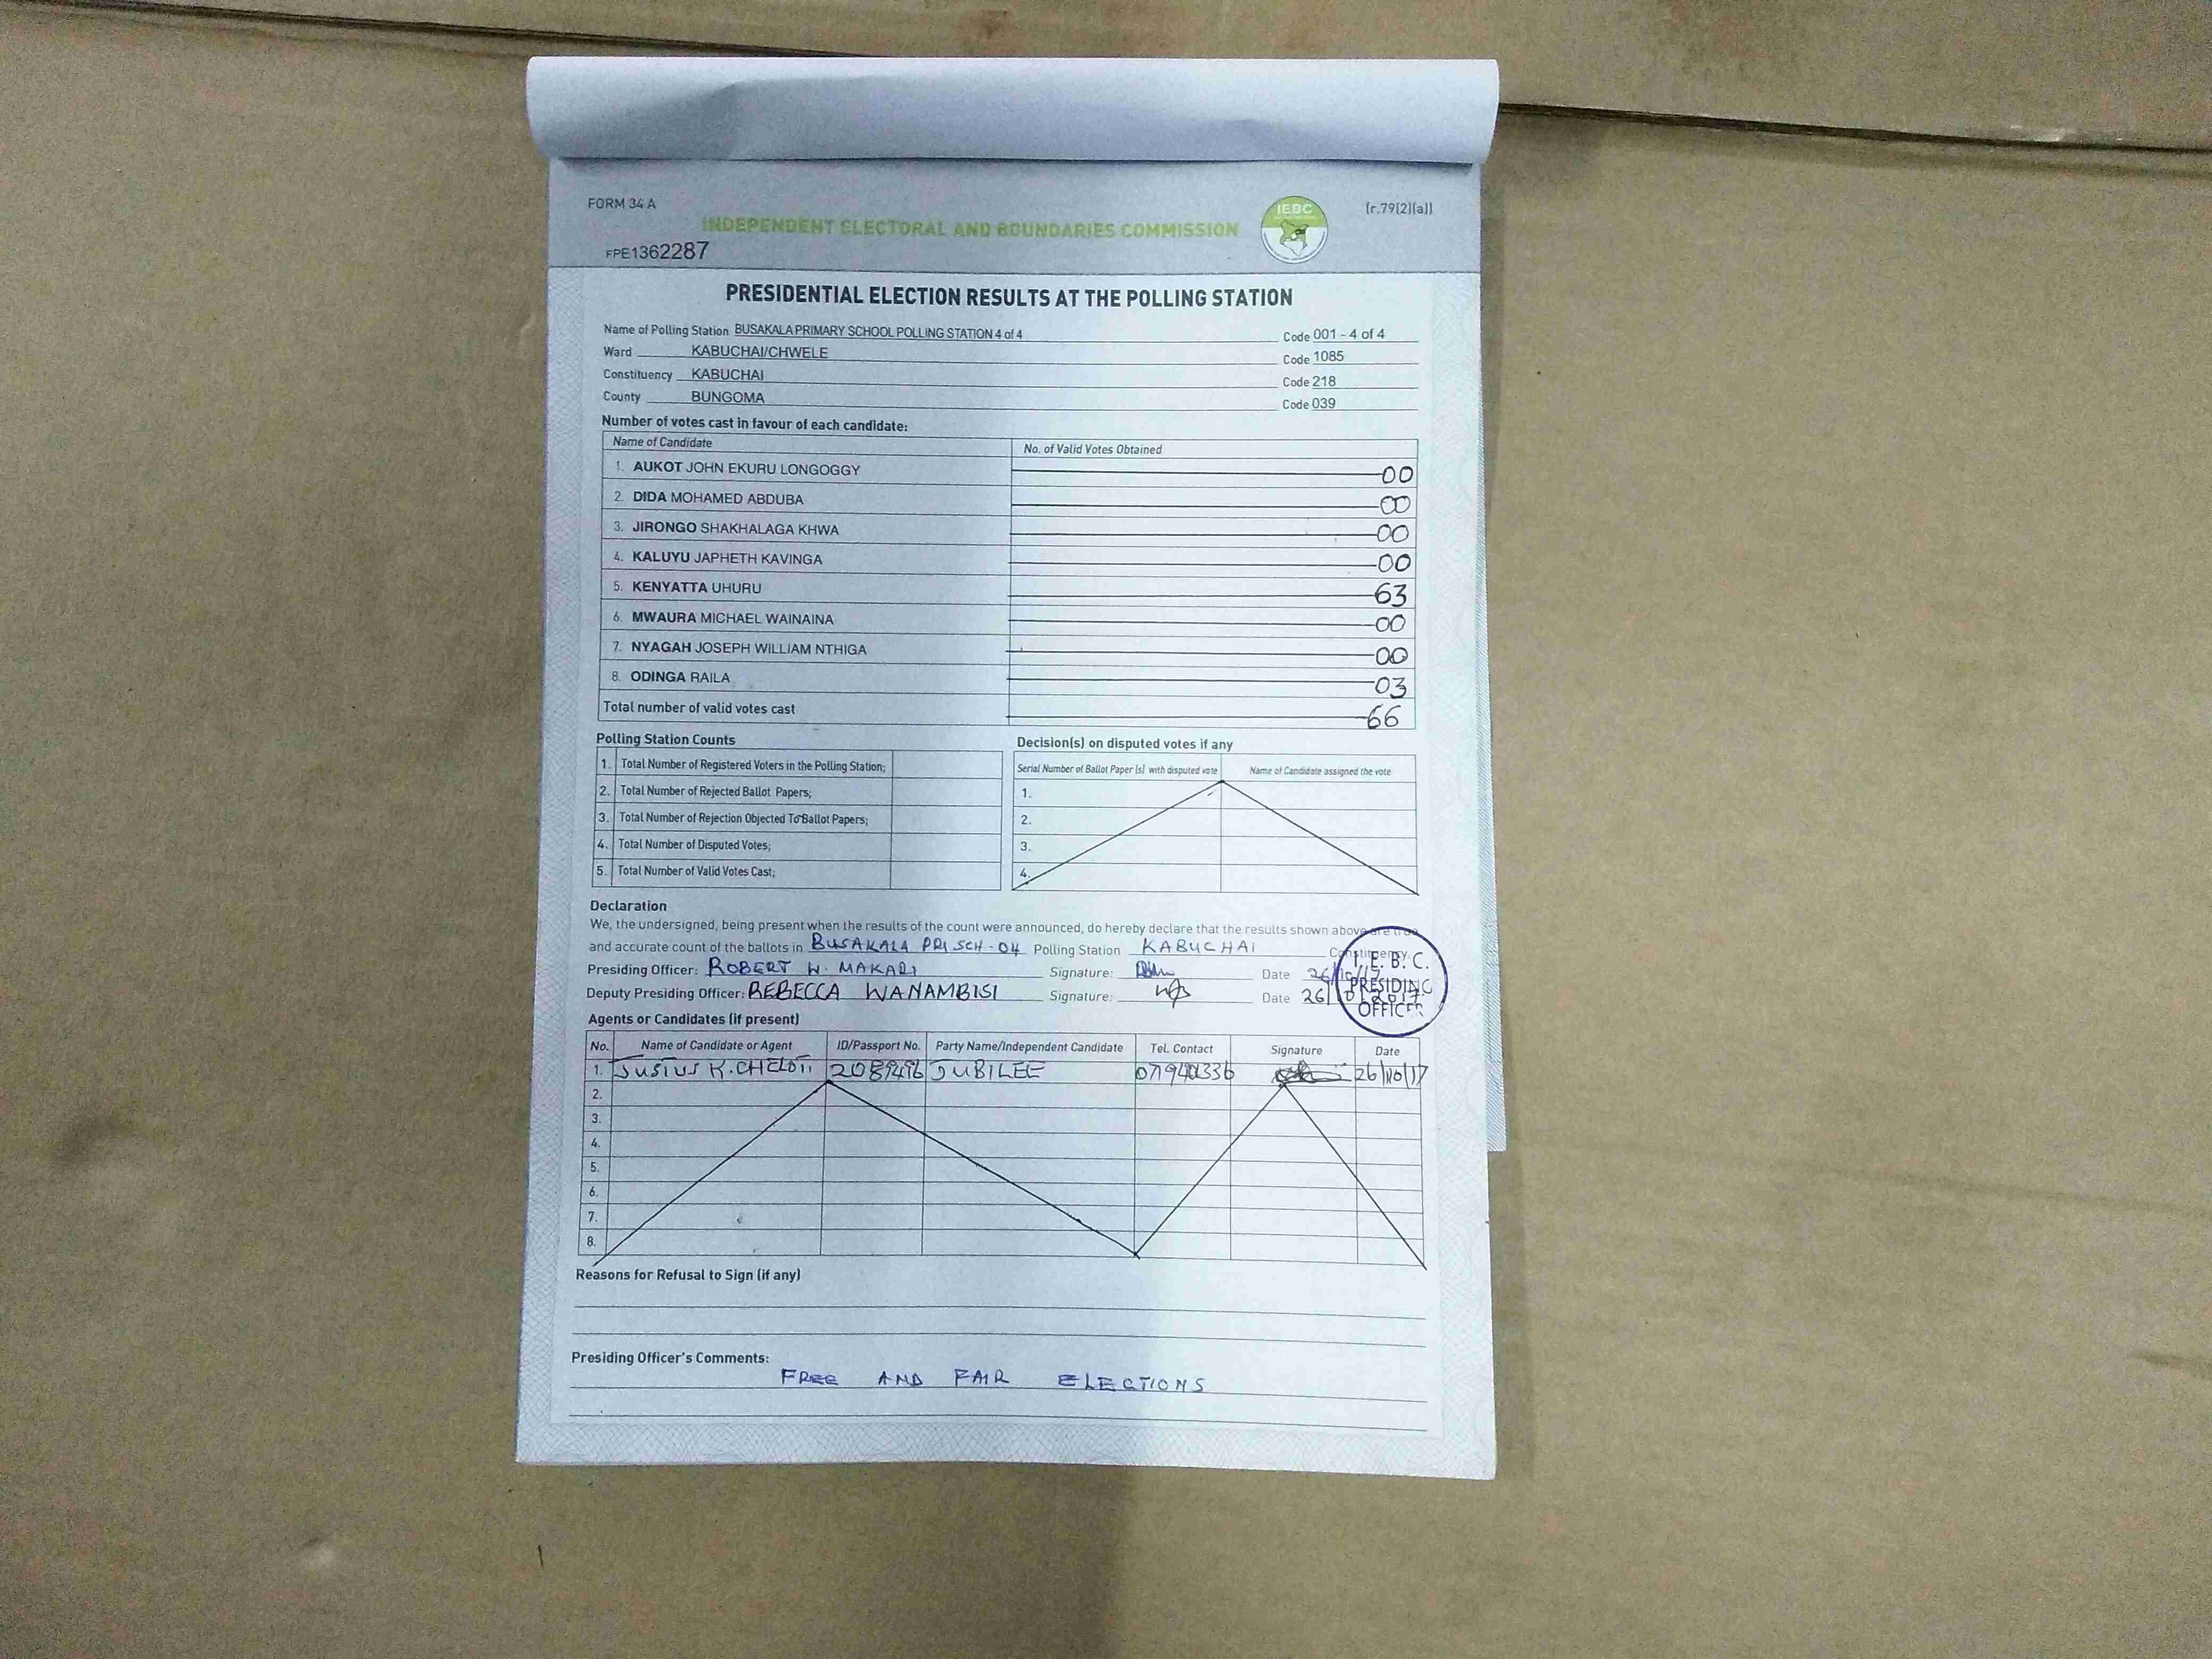 FORM 34 A
(r.79(2)(a))
IEBC
INDEPENDENT ELECTORAL AND BOUNDARIES COMMISSION
FPE1362287
PRESIDENTIAL ELECTION RESULTS AT THE POLLING STATION
Name of Polling Station BUSAKALA PRIMARY SCHOOL POLLING STATION 4 of 4 Code 001 - 4 of 4
Ward KABUCHAI/CHWELE Code 1085
Constituency KABUCHAI Code 218
County BUNGOMA Code 039
Number of votes cast in favour of each candidate:
Name of Candidate No. of Valid Votes Obtained
1. AUKOT JOHN EKURU LONGOGGY 00
2. DIDA MOHAMED ABDUBA 00
3. JIRONGO SHAKHALAGA KHWA 00
4. KALUYU JAPHETH KAVINGA 00
5. KENYATTA UHURU 63
6. MWAURA MICHAEL WAINAINA 00
7. NYAGAH JOSEPH WILLIAM NTHIGA 00
8. ODINGA RAILA 03
Total number of valid votes cast 66
Polling Station Counts
1. Total Number of Registered Voters in the Polling Station;
2. Total Number of Rejected Ballot Papers;
3. Total Number of Rejection Objected To Ballot Papers;
4. Total Number of Disputed Votes;
5. Total Number of Valid Votes Cast;
Decision(s) on disputed votes if any
Serial Number of Ballot Paper (s) with disputed vote Name of Candidate assigned the vote
1.
2.
3.
4.
Declaration
We, the undersigned, being present when the results of the count were announced, do hereby declare that the results shown above are true
and accurate count of the ballots in BUSAKALA PRI SCH-04 Polling Station KABUCHAI Constituency.
Presiding Officer: ROBERT W. MAKARI Signature: Date 26/10/17
Deputy Presiding Officer: REBECCA WANAMBISI Signature: Date 26/10/2017
I.E.B.C.
PRESIDING
OFFICER
Agents or Candidates (if present)
No. Name of Candidate or Agent ID/Passport No. Party Name/Independent Candidate Tel. Contact Signature Date
1. JUSTUS K. JUBILEE 26/10/17
2.
3.
4.
5.
6.
7.
8.
Reasons for Refusal to Sign (if any)
Presiding Officer's Comments:
FREE AND FAIR ELECTIONS